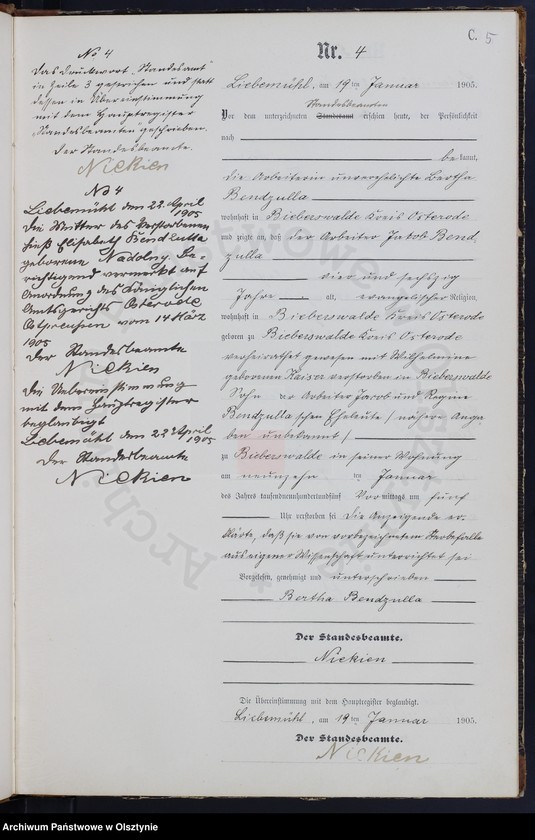 C. 5
Nr. 4
Liebemühl, am 19 ten Januar 1905.
Standesbeamten
Vor dem unterzeichneten Standesamt erschien heute, der Persönlichkeit
nach
bekannt,
die Arbeiterin unverehelichte Bertha
Bendzulla
wohnhaft in Bieberswalde Kreis Osterode
und zeigte an, daß der Arbeiter Jakob Bend
zulla
vier und sechszig
Jahre alt, evangelischer Religion,
wohnhaft in Bieberswalde Kreis Osterode
geboren zu Bieberswalde Kreis Osterode
verheirathet gewesen mit Wilhelmine
geborenen Kaiser verstorben in Bieberswalde
Sohn der Arbeiter Jacob und Regine
Bendzulla'schen Eheleute / nähere Anga
ben unbekannt /
zu Bieberswalde in seiner Wohnung
am neunzehn ten Januar
des Jahres tausendneunhundertundfünf Vormittags um fünf
Uhr verstorben sei Die Anzeigende er-
klärte, daß sie von vorbezeichnetem Sterbefalle
aus eigener Wissenschaft unterrichtet sei
Vorgelesen, genehmigt und unterschrieben
Bertha Bendzulla
Der Standesbeamte.
Nickien
Die Übereinstimmung mit dem Hauptregister beglaubigt.
Liebemühl, am 19 ten Januar 1905.
Der Standesbeamte.
Nickien
No 4
Das Druckwort "Standesamt"
in Zeile 3 gestrichen und statt
dessen in Übereinstimmung
mit dem Hauptregister
"Standesbeamten" geschrieben.
Der Standesbeamte.
Nickien
No 4
Liebemühl den 22. April
1905
Die Mutter des Verstorbenen
hieß Elisabeth Bendzulla
geborene Nadolny. Be-
richtigend vermerkt auf
Anordnung des Königlichen
Amtsgerichts Osterode
Ostpreußen vom 14 März
1905
Der Standesbeamte
Nickien
Die Uebereinstimmung
mit dem Hauptregister
beglaubigt
Liebemühl den 22 April
1905
Der Standesbeamte
Nickien
Archiwum Państwowe w Olsztynie